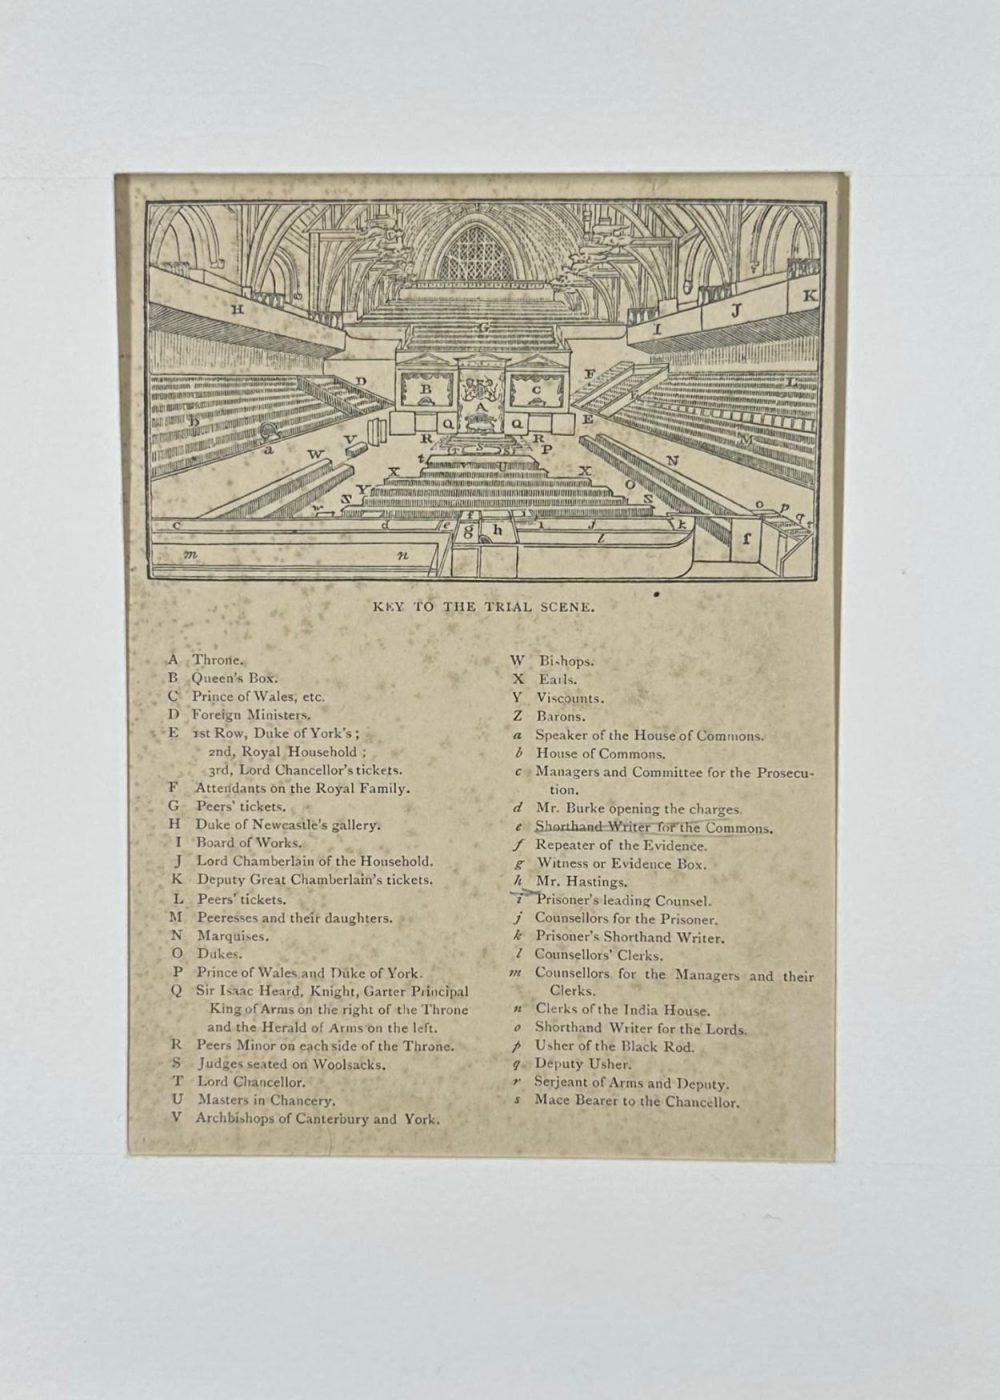 H
G
I
J
K
D
B
A
C
F
E
L
b
a
Q
Q
M
V
R
R
P
W
t
T
S
S
V
U
N
X
X
O
Y
S
S
c
d
e
f
g
h
i
j
k
l
m
n
o
p
q
r
f
KEY TO THE TRIAL SCENE.
A Throne.
B Queen's Box.
C Prince of Wales, etc.
D Foreign Ministers.
E 1st Row, Duke of York's;
2nd, Royal Household;
3rd, Lord Chancellor's tickets.
F Attendants on the Royal Family.
G Peers' tickets.
H Duke of Newcastle's gallery.
I Board of Works.
J Lord Chamberlain of the Household.
K Deputy Great Chamberlain's tickets.
L Peers' tickets.
M Peeresses and their daughters.
N Marquises.
O Dukes.
P Prince of Wales and Duke of York.
Q Sir Isaac Heard, Knight, Garter Principal
King of Arms on the right of the Throne
and the Herald of Arms on the left.
R Peers Minor on each side of the Throne.
S Judges seated on Woolsacks.
T Lord Chancellor.
U Masters in Chancery.
V Archbishops of Canterbury and York.
W Bishops.
X Earls.
Y Viscounts.
Z Barons.
a Speaker of the House of Commons.
b House of Commons.
c Managers and Committee for the Prosecu-
tion.
d Mr. Burke opening the charges.
e Shorthand Writer for the Commons.
f Repeater of the Evidence.
g Witness or Evidence Box.
h Mr. Hastings.
i Prisoner's leading Counsel.
j Counsellors for the Prisoner.
k Prisoner's Shorthand Writer.
l Counsellors' Clerks.
m Counsellors for the Managers and their
Clerks.
n Clerks of the India House.
o Shorthand Writer for the Lords.
p Usher of the Black Rod.
q Deputy Usher.
r Serjeant of Arms and Deputy.
s Mace Bearer to the Chancellor.